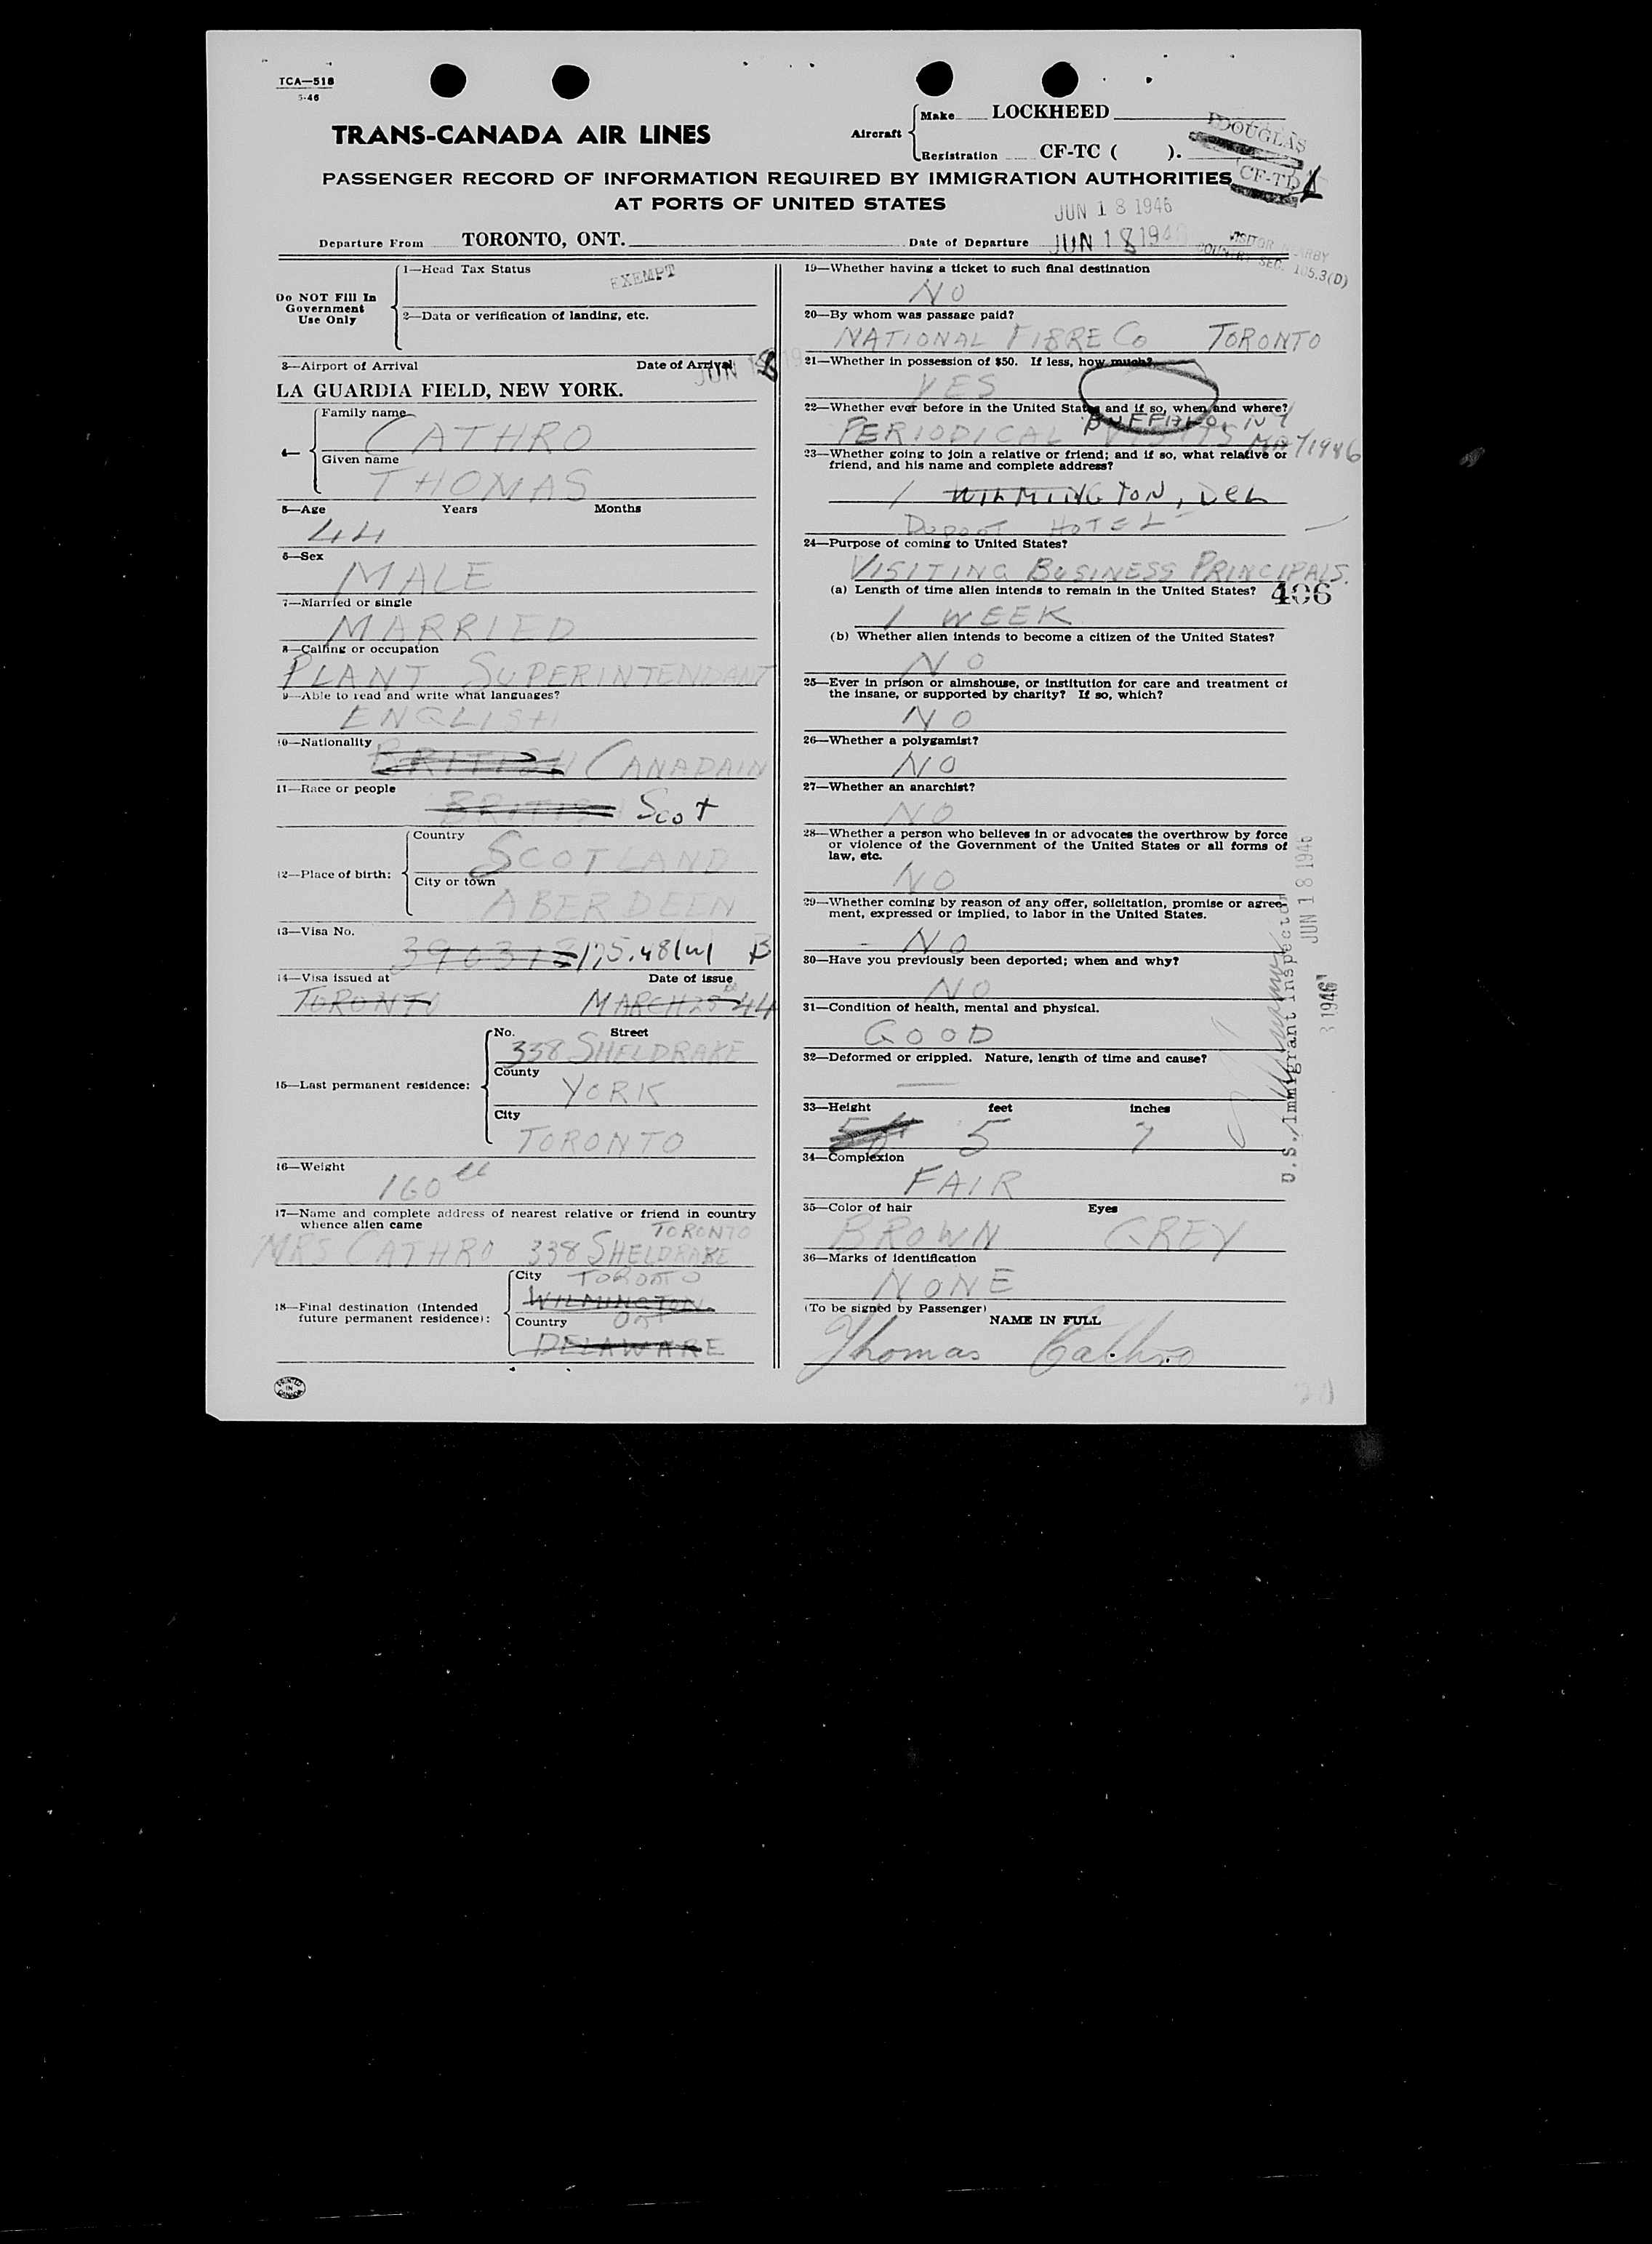 TCA—518
5-46
TRANS-CANADA AIR LINES
Aircraft
Make LOCKHEED
Registration CF-TC ( ).
DOUGLAS
CF-TD
PASSENGER RECORD OF INFORMATION REQUIRED BY IMMIGRATION AUTHORITIES
AT PORTS OF UNITED STATES
JUN 18 1946
Departure From TORONTO, ONT. Date of Departure JUN 18 194
VISITOR NEARBY
COUNTRY SEC. 105.3(D)
Do NOT Fill In
Government
Use Only
1—Head Tax Status
EXEMPT
2—Data or verification of landing, etc.
3—Airport of Arrival Date of Arrival
JUN 18
LA GUARDIA FIELD, NEW YORK.
4—
Family name
CATHRO
Given name
THOMAS
5—Age Years Months
44
6—Sex
MALE
7—Married or single
MARRIED
8—Calling or occupation
PLANT SUPERINTENDANT
9—Able to read and write what languages?
ENGLISH
10—Nationality
BRITISH CANADAIN
11—Race or people
BRITISH Scot
12—Place of birth:
Country
SCOTLAND
City or town
ABERDEEN
13—Visa No.
175.48(w) B
14—Visa issued at Date of issue
TORONTO MARCH 25 44
15—Last permanent residence:
No. Street
338 SHELDRAKE
County
YORK
City
TORONTO
16—Weight
160
17—Name and complete address of nearest relative or friend in country
whence alien came
TORONTO
MRS CATHRO 338 SHELDRAKE
18—Final destination (Intended
future permanent residence):
City TORONTO
WILMINGTON
Country ONT
DELAWARE
PRINTED
IN
CANADA
19—Whether having a ticket to such final destination
NO
20—By whom was passage paid?
NATIONAL FIBRE Co TORONTO
21—Whether in possession of $50. If less, how much?
YES
22—Whether ever before in the United States and if so, when and where?
BUFFALO, NY
PERIODICAL VISITS MAY 1946
23—Whether going to join a relative or friend; and if so, what relative or
friend, and his name and complete address?
WILMINGTON, DEL
DUPONT HOTEL
24—Purpose of coming to United States?
VISITING BUSINESS PRINCIPALS.
(a) Length of time alien intends to remain in the United States?
406
1 WEEK
(b) Whether alien intends to become a citizen of the United States?
NO
25—Ever in prison or almshouse, or institution for care and treatment of
the insane, or supported by charity? If so, which?
NO
26—Whether a polygamist?
NO
27—Whether an anarchist?
NO
28—Whether a person who believes in or advocates the overthrow by force
or violence of the Government of the United States or all forms of
law, etc.
NO
29—Whether coming by reason of any offer, solicitation, promise or agree-
ment, expressed or implied, to labor in the United States.
NO
30—Have you previously been deported; when and why?
NO
31—Condition of health, mental and physical.
GOOD
32—Deformed or crippled. Nature, length of time and cause?
—
33—Height feet inches
5 7
34—Complexion
FAIR
35—Color of hair Eyes
BROWN GREY
36—Marks of identification
NONE
(To be signed by Passenger)
NAME IN FULL
Thomas Cathro
U.S. Immigrant Inspector
JUN 18 1946
1946